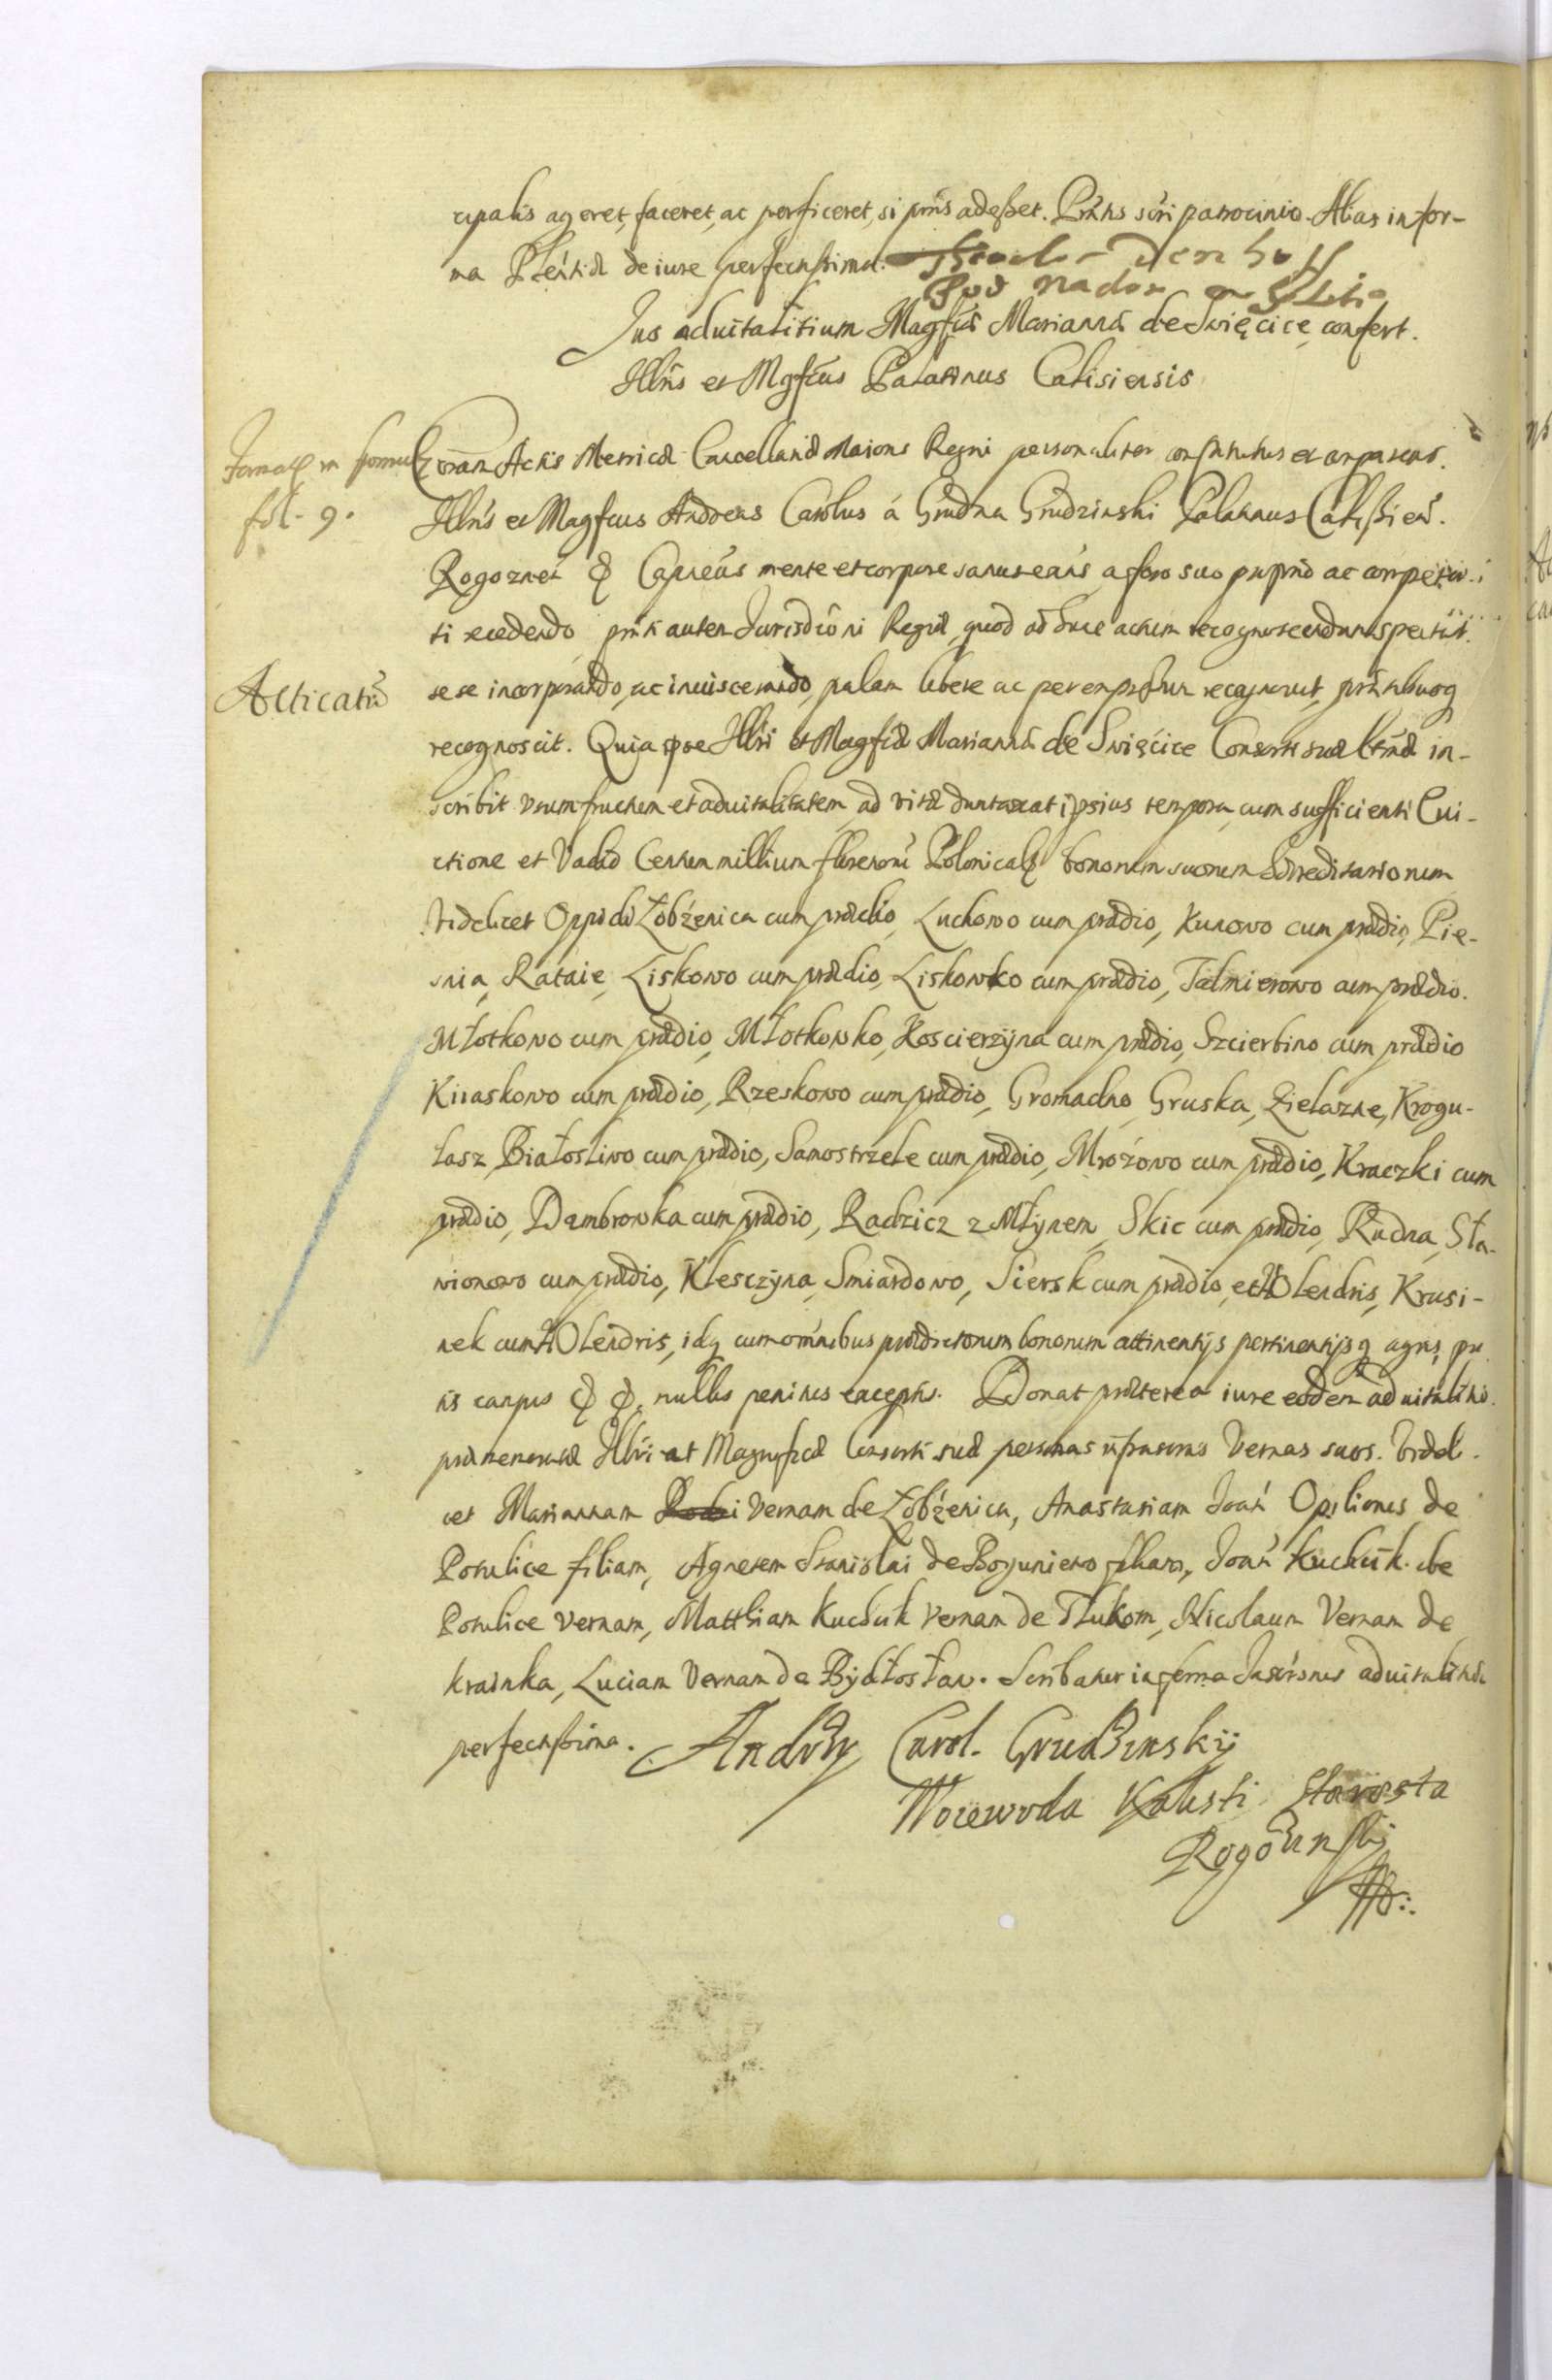 cipalis ageret, faceret, ac perficeret, si prns adesset. Prntis scri patrocinio. Alias in for-
ma Plen de iure perfectissima. Theodor Denhoff
Pod
Jus aduitalitium Magfcæ Mariannæ de Swięcice, confert.
Illris et Mgfcus Palatinus Calisiensis
Coram Actis Metricæ Cancellariæ Maioris Regni personaliter constitutus et comparens.
fol. 9.
Illris et Magfcus Andreas Carolus á Grudna Grudzinski Palatinus Calissien.
Rogoznen & Capneus mente et corpore sanus existens a foro suo proprio ac competen-
ti recedendo, prnti autem Jurisdicioni Regiæ, quod ad hunc actum recognoscendum spectat.
Acticatũ
sese incorporando, ac inuiscerando, palam libere ac per expressum recognouit, prntibusq
recognoscit. Quia ipse Illri et Magfcæ Mariannæ de Swięcice Consorti suæ Chrmæ in-
scribit vsumfructum et aduitalitatem, ad vitæ duntaxat ipsius tempora, cum sufficienti Eui-
ctione et Vadio Centum millium florenorũ Polonicalium bonorum suorum hæreditariorum
videlicet Oppidi Łobżenica cum prædio, Luchowo cum prædio, Kunowo cum prædio, Pie-
snia, Rataie, Liskowo cum prædio, Liskowko cum prædio, Falmierowo cum prædio.
Młotkowo cum prædio, Młotkowko, Koscierzyna cum prædio, Szczerbino cum prædio
Kiiaskowo cum prædio, Rzeskowo cum prædio, Gromadno, Gruska, Zielazne, Krogu-
lasz, Białosliwo cum prædio, Samostrzele cum prædio, Mrozowo cum prædio, Kraczki cum
prædio, Dambrowka cum prædio, Radzicz z Młynem, Skic cum prædio, Rudna, Sta-
wionowo cum prædio, Klesczyna, Smiardowo, Siersk cum prædio, et Holendris, Krusi-
nek cum Holendris, idq cum omnibus prædictorum bonorum attinentijs pertinentijsq agris, pra
tis campis & &. nullis penitus exceptis. Donat præterea iure eodem aduitalitio.
præmemoratæ Illri et Magnificæ Consorti suæ personas infrascriptas Vernas suos. Videli-
cet Mariannam Vernam de Łobżenica, Anastasiam Joan Opilionis de
Potulice filiam, Agnetem Stanislai de Boguniewo filiam, Joan Kuchcik de
Potulice vernam, Matthiam Kuchcik Vernam de Tlukom, Nicolaum Vernam de
Krainka, Luciam Vernam de Białosław. Scribatur in forma Inscriptionis aduitalitiæ
perfectissima. Andrzey Carol. Grudzinskij
Woiewoda Kaliski Starosta
Rogozinskij